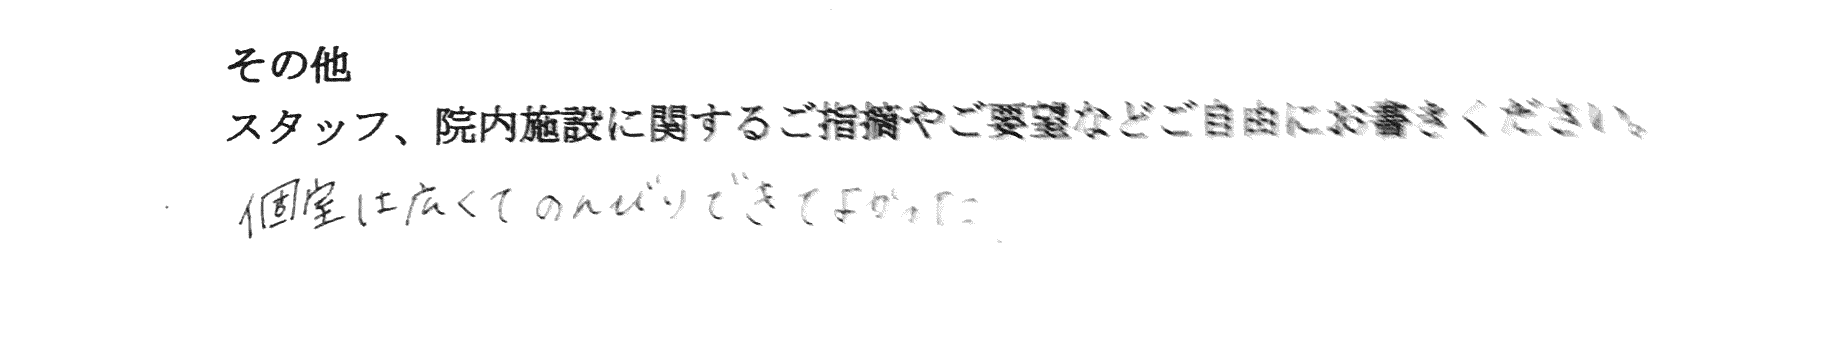 その他
スタッフ、院内施設に関するご指摘やご要望などご自由にお書きください。
個室は広くてのんびりできてよかった